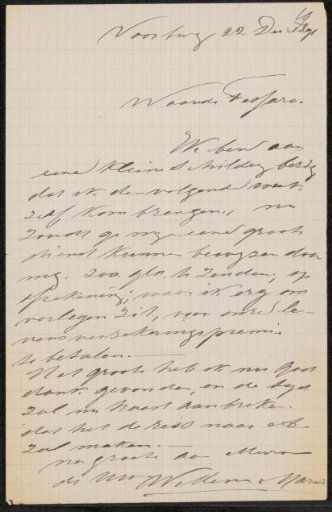 Voorburg 22 Dec
Waarde Tessaro.
Ik ben aan
een klein schilderij bezig
dat ik de volgende week
zelf kom brengen, nu
zoudt ge mij een groote
dienst kunnen bewijzen door
mij te zenden, op
afrekening, waar ik erg om
verlegen zit, voor onze le-
vensverzekeringspremie
te betalen.—
Het groote heb ik nu goed
gevonden, en de
zal nu haast aanbreken
dat het de reis naar A.
zal maken.—
na groete aan Mevrouw
Willem Maris